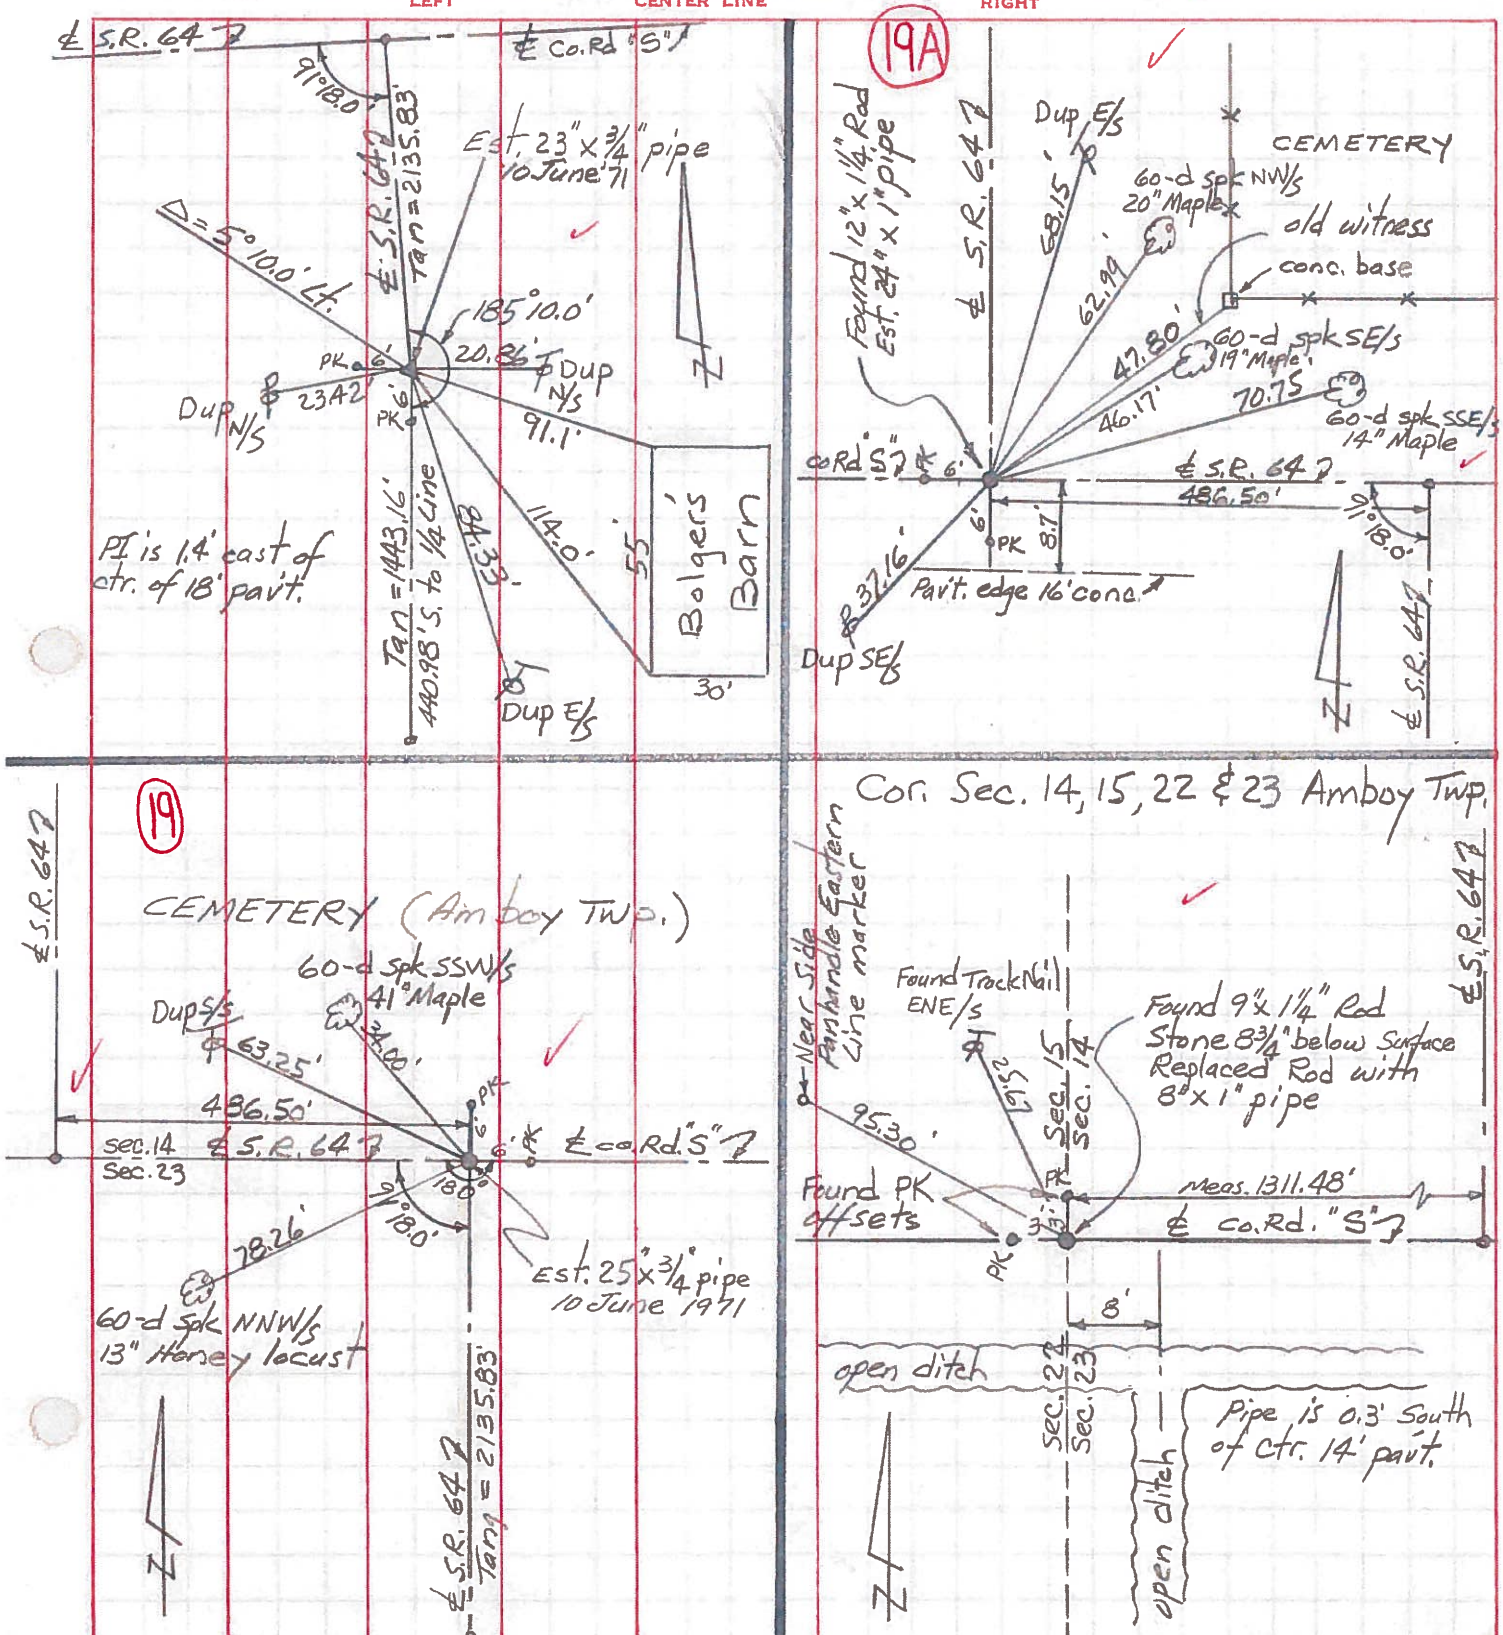 LEFT
CENTER LINE
RIGHT
℄ S.R. 64
℄ Co.Rd "S"
91°18.0'
℄ S.R. 64
Tan = 2135.83'
Est. 23" x 3/4" pipe
10 June '71
Δ = 5°10.0' Lt.
185°10.0'
PK
6'
20.86'
Dup
N/S
23.42'
Dup
N/S
6'
PK
91.1'
114.0'
84.33
55'
Bolger's
Barn
30'
PI is 1.4' east of
ctr. of 18' pav't.
Tan = 1443.16'
440.98' S. to 1/4 Line
Dup E/S
N
19A
Found 12" x 1 1/4" Rod
Est. 24" x 1" pipe
℄ S.R. 64
Dup E/S
68.15'
CEMETERY
60-d spk NW/S
20" Maple
62.99'
old witness
conc. base
47.80'
60-d spk SE/S
19" Maple
46.17'
70.75'
60-d spk SSE/S
14" Maple
Co Rd "S"
PK
6'
℄ S.R. 64
486.50'
91°18.0'
6'
PK
8.7'
37.16'
Pav't. edge 16' conc.
Dup SE/S
N
℄ S.R. 64
19
℄ S.R. 64
CEMETERY (Amboy Twp.)
60-d spk SSW/S
41" Maple
Dup S/S
34.00'
63.25'
486.50'
PK
6'
6'
PK
℄ co.Rd. "S"
Sec. 14
Sec. 23
℄ S.R. 64
180°
91°18.0'
78.26'
Est. 25" x 3/4" pipe
10 June 1971
60-d spk NNW/S
13" Honey locust
℄ S.R. 64
Tang = 2135.83'
N
Cor. Sec. 14, 15, 22 & 23 Amboy Twp.
Near Side
Panhandle Eastern
Line marker
℄ S.R. 64
Found Track Nail
ENE/S
Found 9" x 1 1/4" Rod
Stone 8 3/4" below Surface
Replaced Rod with
8" x 1" pipe
Sec. 15
Sec. 14
95.30'
Found PK
offsets
PK
3'
3'
PK
Meas. 1311.48'
℄ co.Rd. "S"
8'
open ditch
Sec. 22
Sec. 23
open ditch
Pipe is 0.3' South
of Ctr. 14' pav't.
N